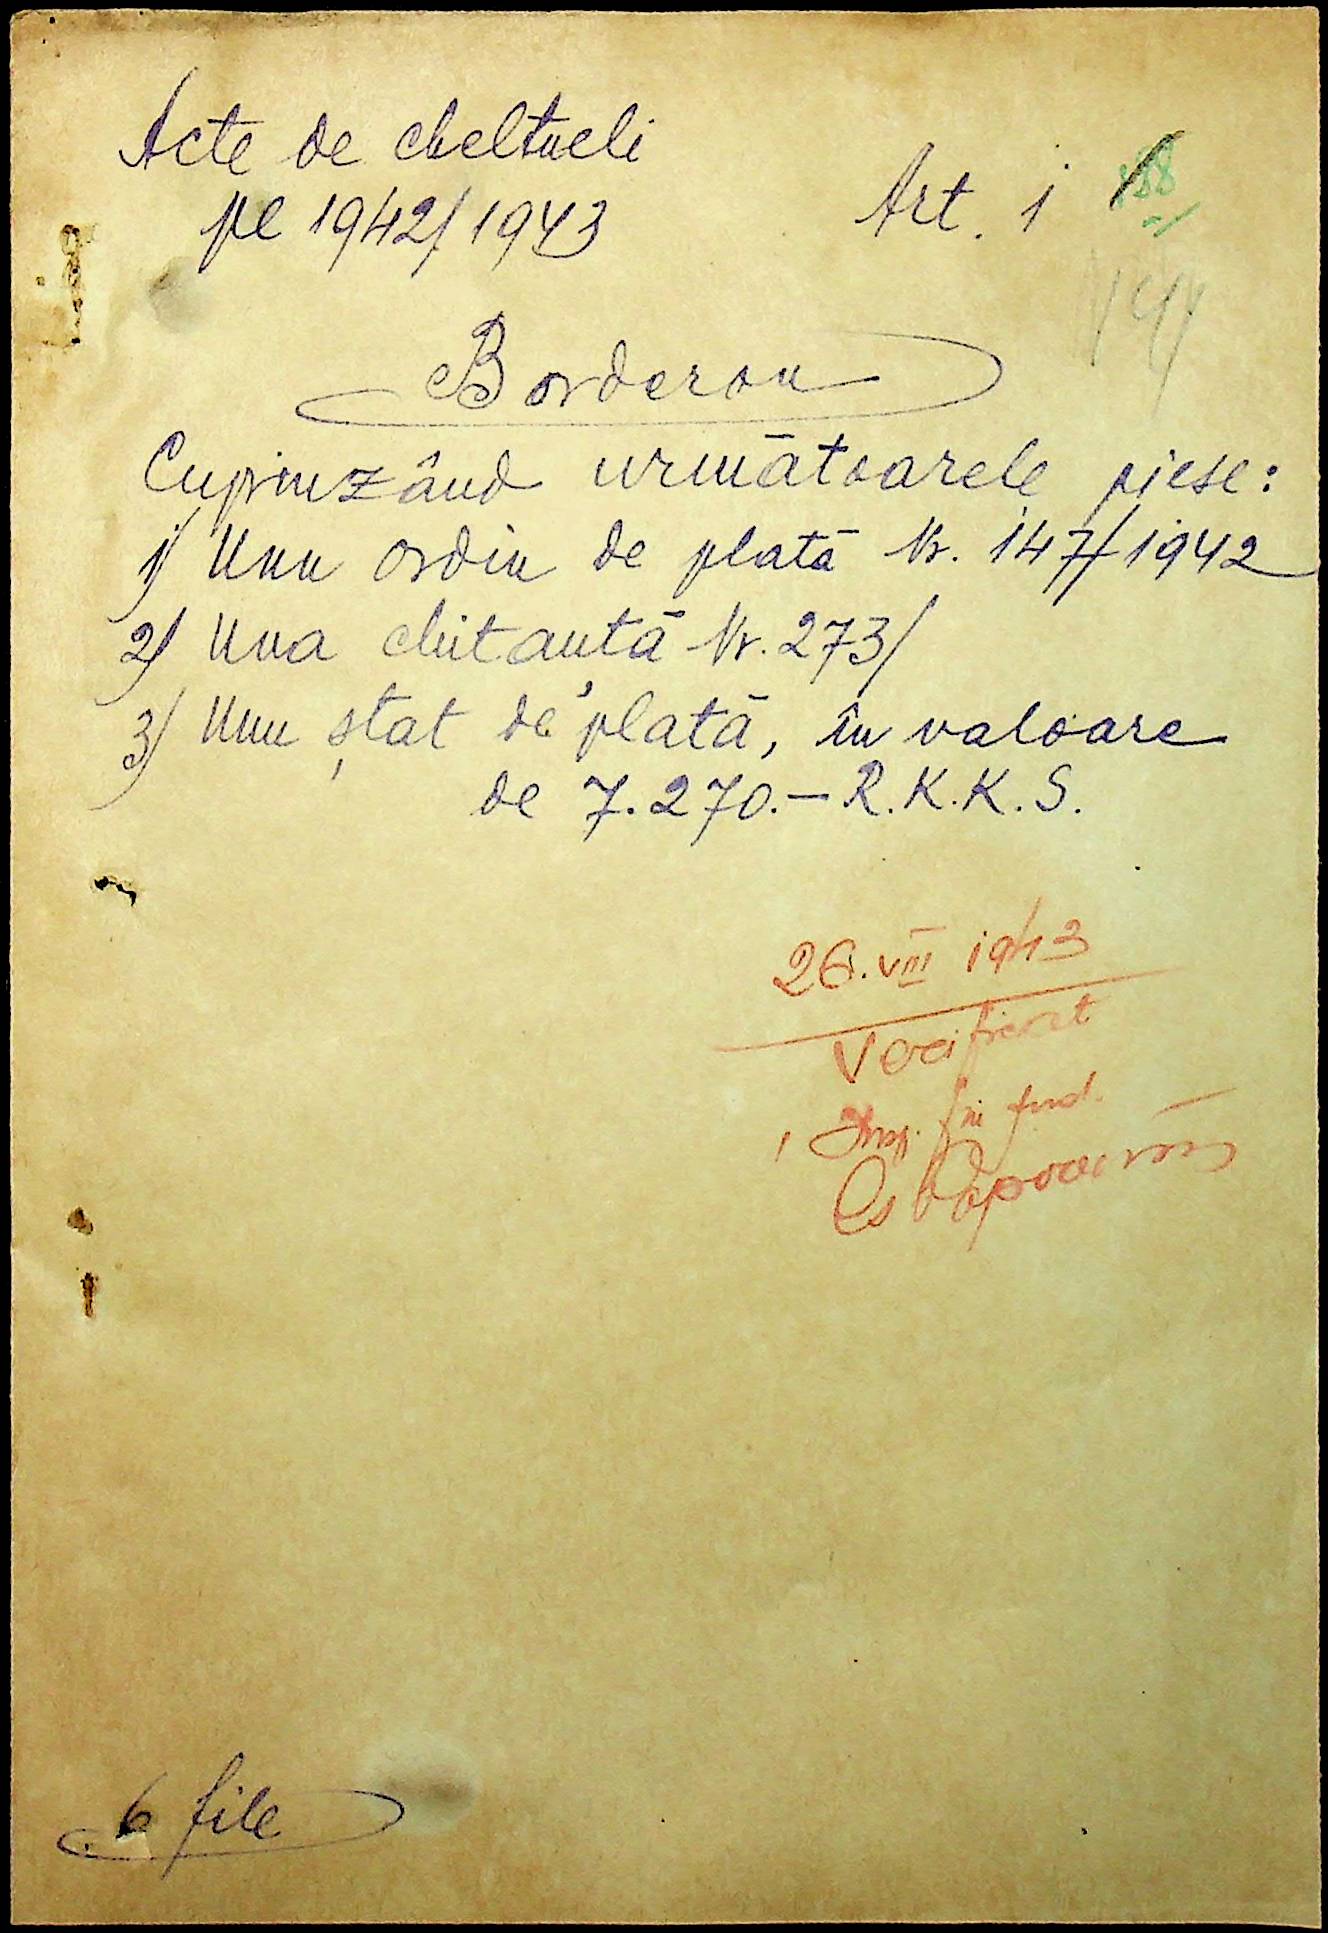 Acte de cheltueli
pe 1942/1943
Art. 1
188
141
Borderou
Cuprinzând următoarele piese:
1) Unu ordin de plată Nr. 147/1942
2) Una chitanță Nr. 273/
3) Unu ștat de plată, în valoare
de 7.270.— R.K.K.S.
26.VIII 1943
Verificat
Insp. fin
6 file